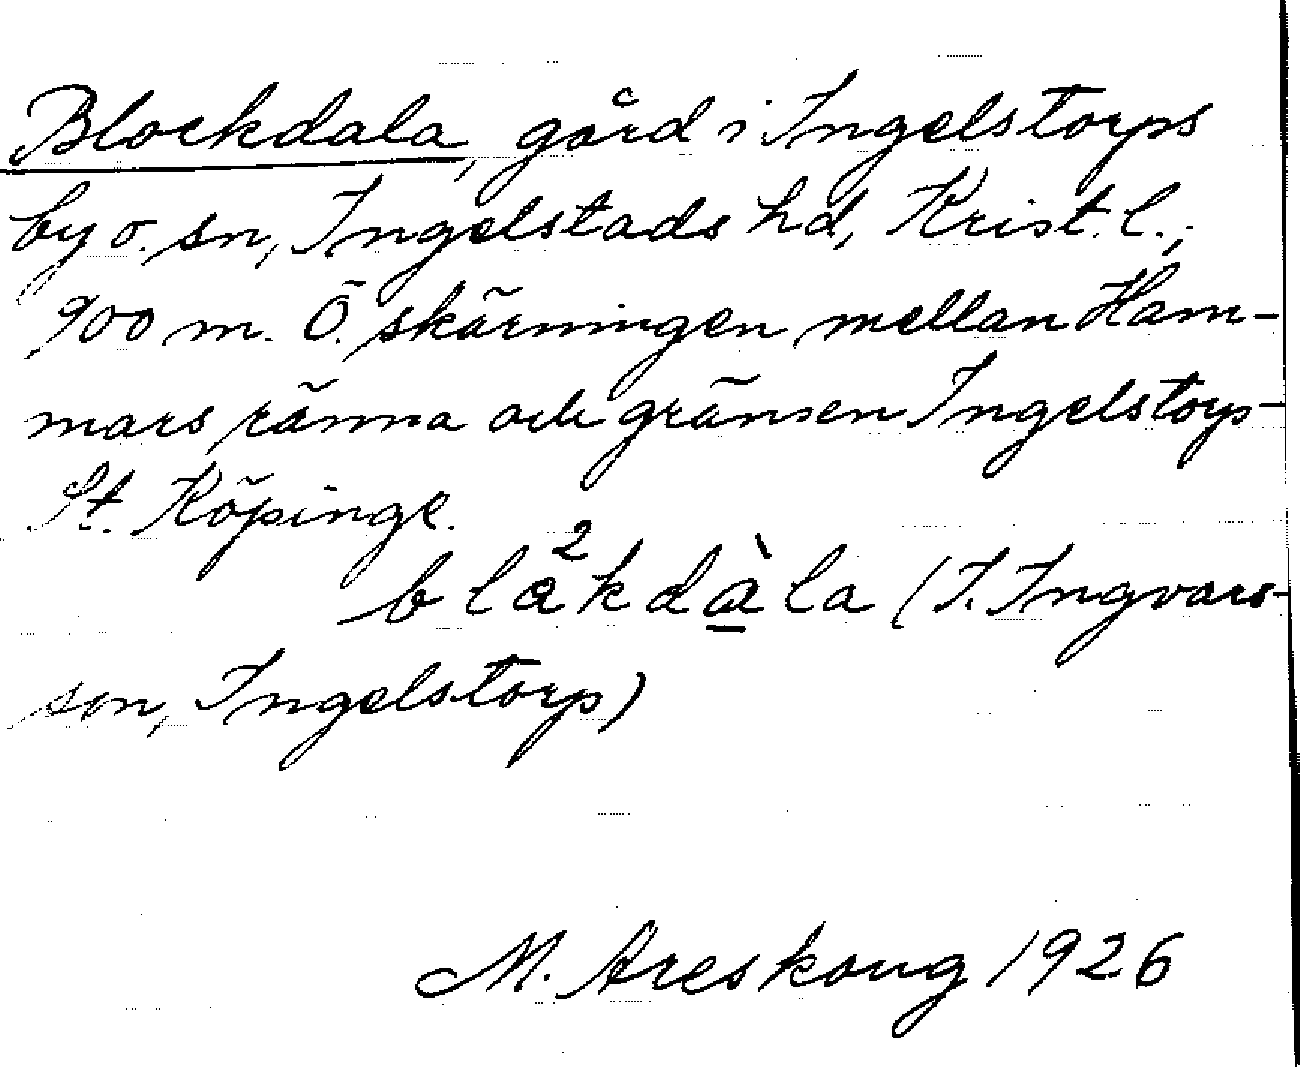 Blockdala, gård i Ingelstorps
by o. sn, Ingelstads hd, Krist. l.;
900 m. Ö. skärningen mellan Ham-
mars ränna och gränsen Ingelstorps-
St. Köpinge.
blåkdàla (I. Ingvars-
son, Ingelstorp)
M. Areskoug 1926